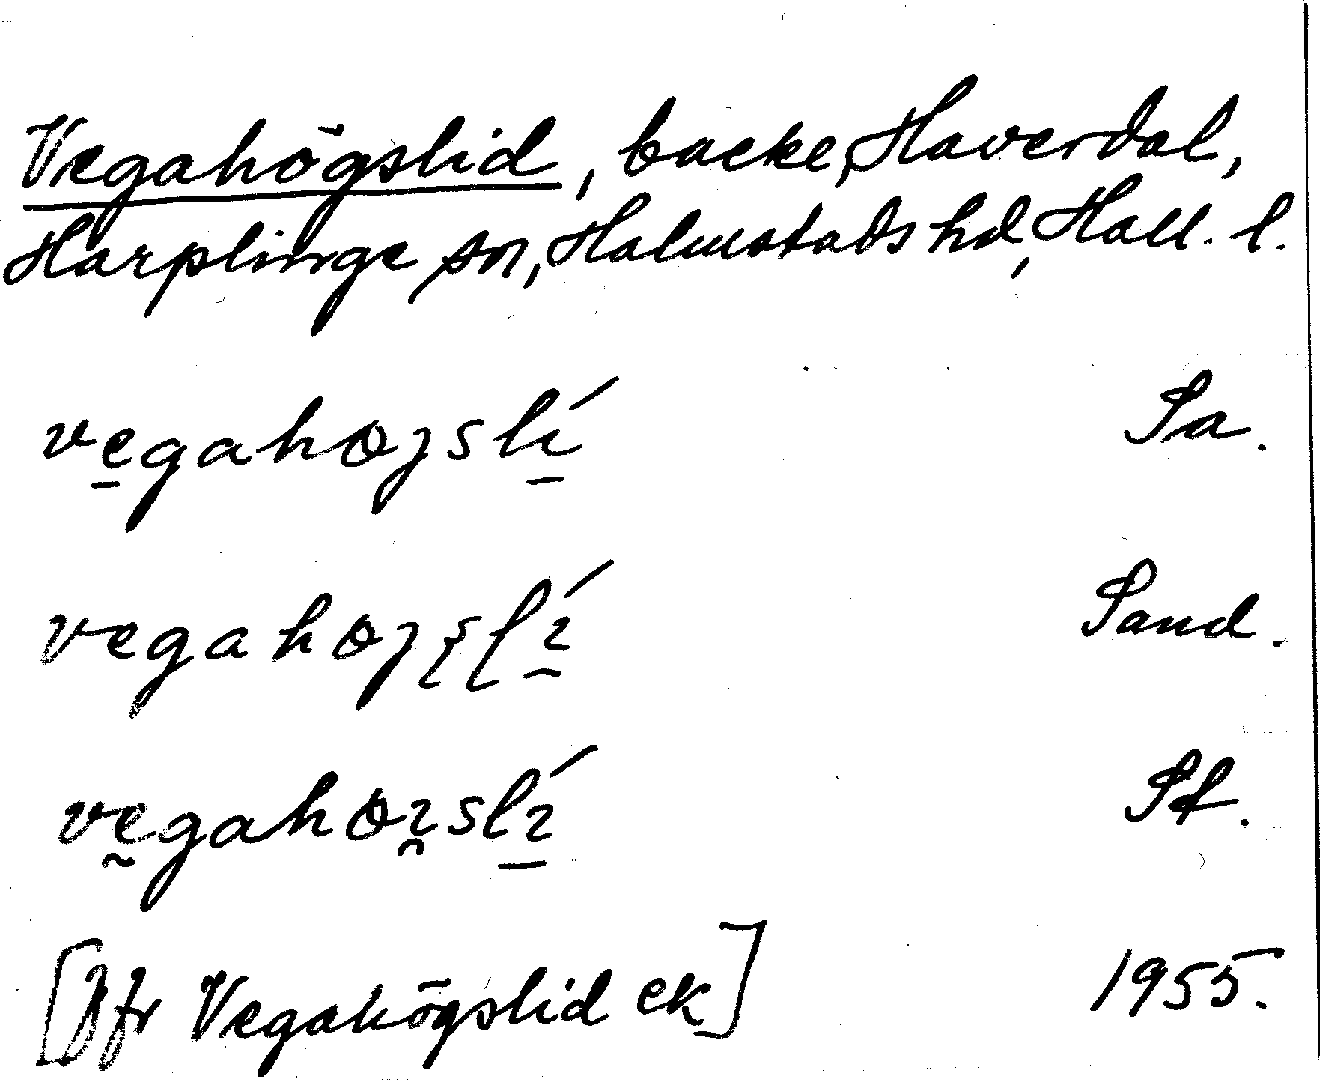 Vegahögslid, backe, Haverdal,
Harplinge sn, Halmstads hd, Hall. l.
vegahøjslí Sa.
vegahøjslí Sand.
vegahøıslí St.
[Jfr Vegahögslid ek] 1955.